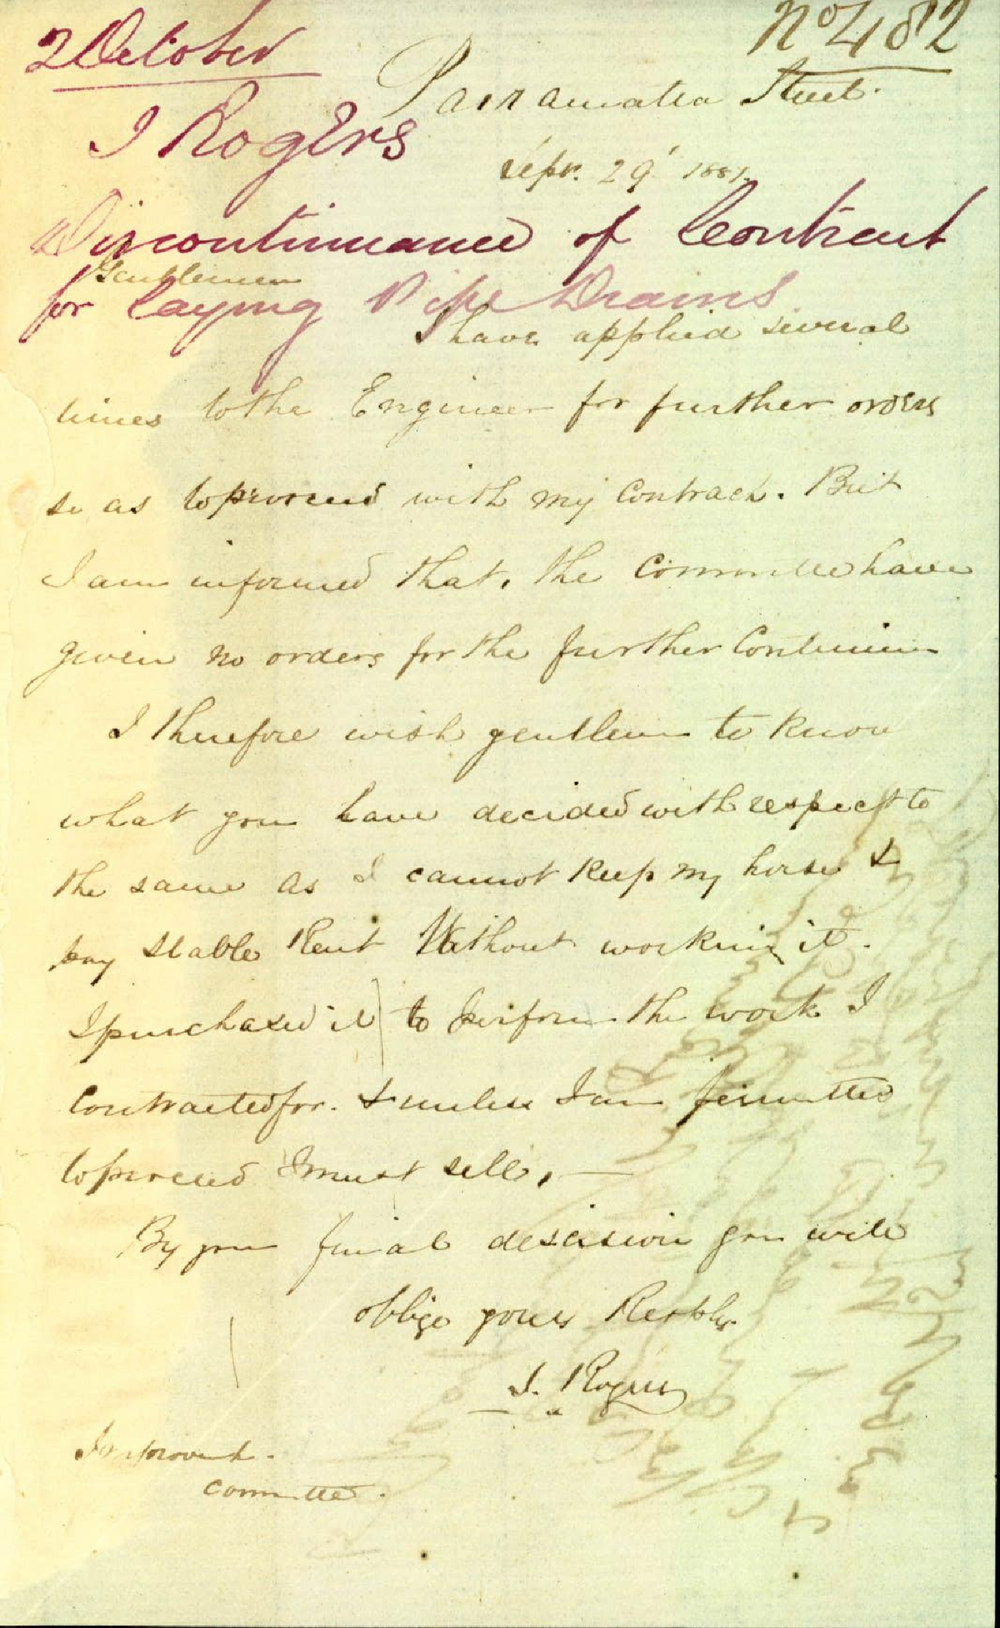 2 October
No 482
Parramatta Street.
I Rogers
Sepr. 29' 1881.
Discontinuance of Contract
Gentlemen
for laying Pipe Drains
I have applied several
times to the Engineer for further orders
so as to proceed with my Contract. But
I am informed that, the Committee have
given no orders for the further
I therefore wish gentlemen to know
what you have decided with respect to
the same as I cannot keep my horse &
pay stable Rent Without working it.
I purchased it to perform the work I
Contracted for. & unless I am permitted
to proceed I must sell, —
By your final descision you will
oblige yours
J. Rogers
Improvmt.
committee.